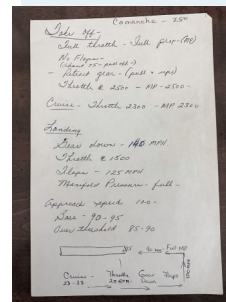 Comanche - 250
Take off -
Full throttle - Full prop - (MP)
No Flaps -
- Retract gear - (pull + ups)
Throttle @ 2500 - MP - 2500 -
Cruise - Throttle 2300 - MP 2300
Landing
Gear down - 140 MPH
Throttle @ 1500
Flaps - 125 MPH
Manifold Pressure - full -
Approach speed 100 -
Base - 90 - 95
Over threshold 85-90
85 90 Full MP
Cruise - Throttle Gear Flaps
23 - 23 Down